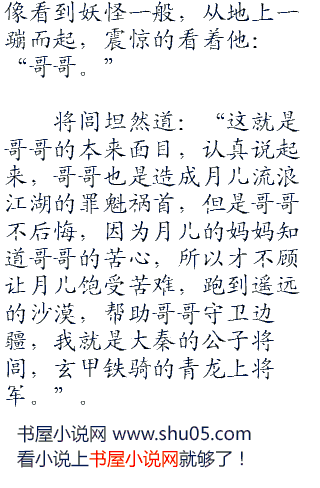 像看到妖怪一般，从地上一
蹦而起，震惊的看着他：
“哥哥。”
将闾坦然道：“这就是
哥哥的本来面目，认真说起
来，哥哥也是造成月儿流浪
江湖的罪魁祸首，但是哥哥
不后悔，因为月儿的妈妈知
道哥哥的苦心，所以才不顾
让月儿饱受苦难，跑到遥远
的沙漠，帮助哥哥守卫边
疆，我就是大秦的公子将
闾，玄甲铁骑的青龙上将
军。”。
书屋小说网 www.shu05.com
看小说上书屋小说网就够了！